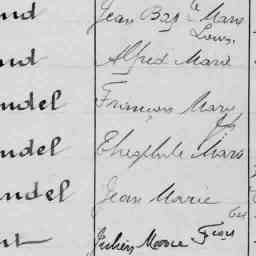 nd Jean Bap te Marie
Louis
nd Alfred Marie
ndel François Marie
ndel Théophile Marie
ndel Jean Marie
nt Julien Marie Fçois